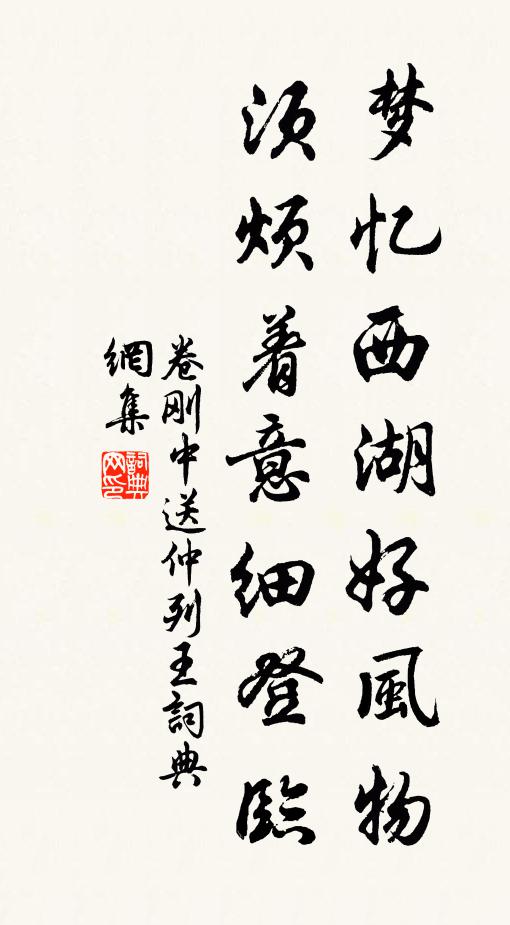 梦忆西湖好風物
须烦着意细登临
卷刚中送仲列王詞典
網集
詞典
网印